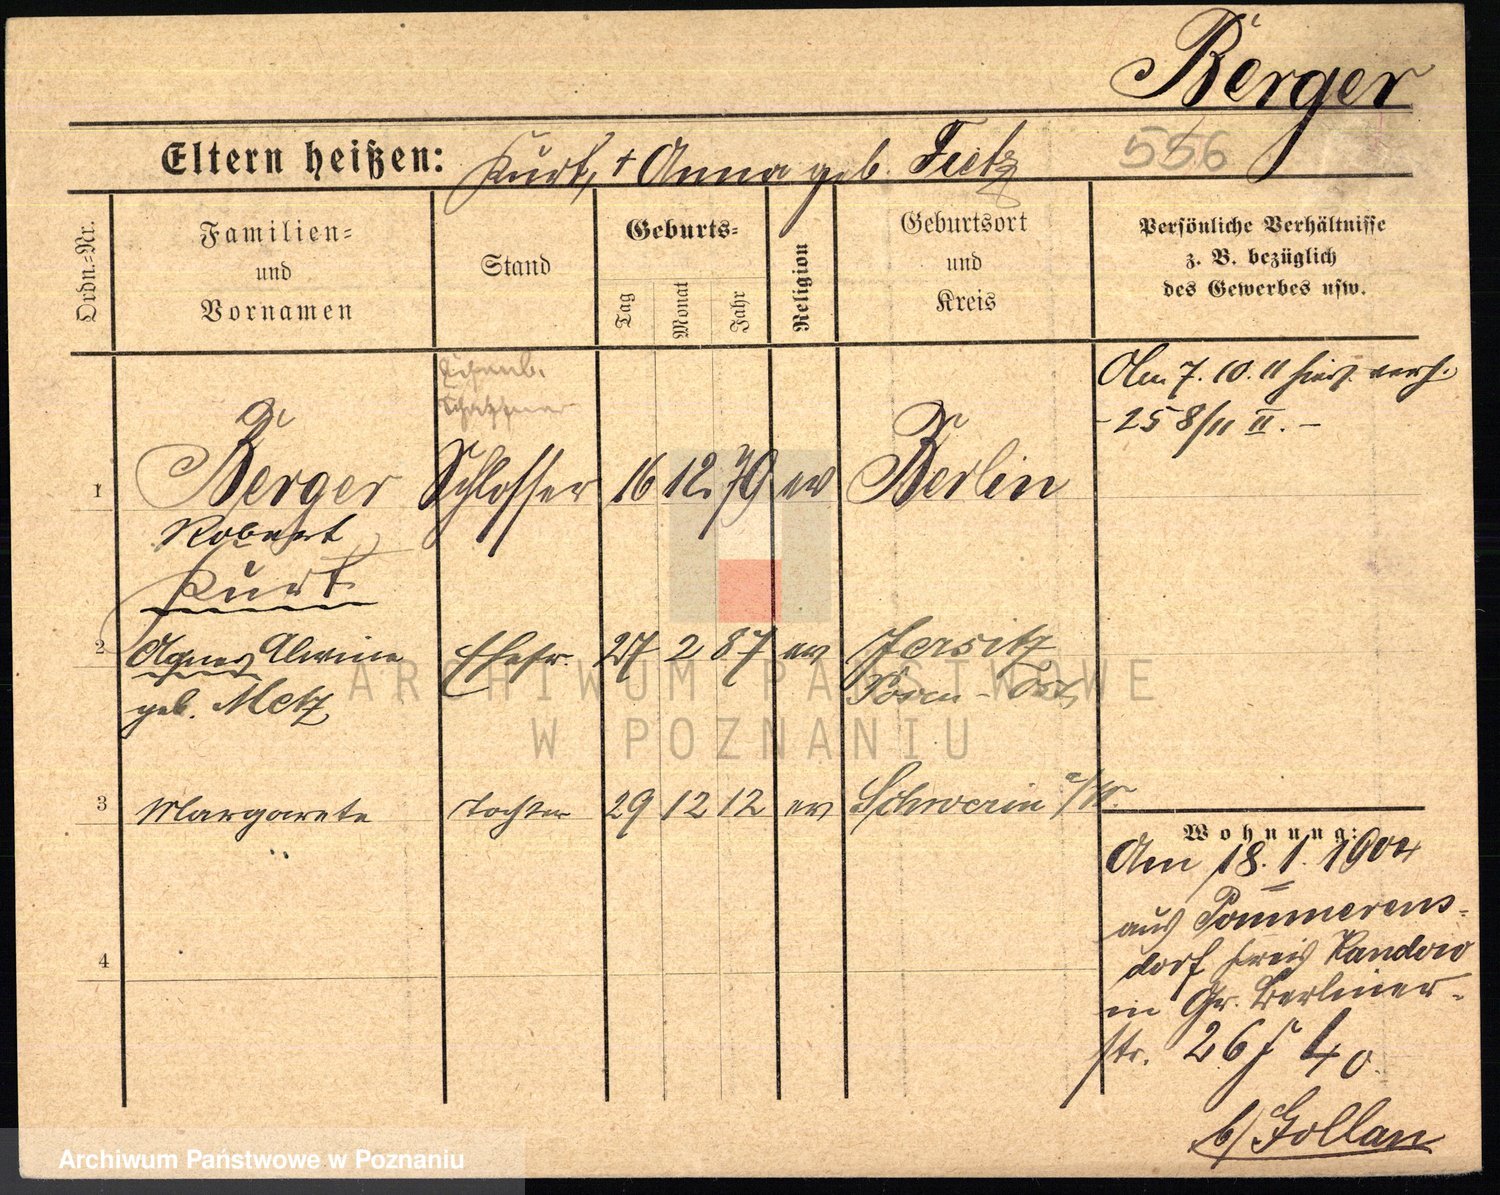 Berger
556
Eltern heißen: Kurt, + Anna geb. Fietz
Ordn.-Nr.
Familien-
und
Vornamen
Stand
Geburts-
Tag
Monat
Jahr
Religion
Geburtsort
und
Kreis
Persönliche Verhältnisse
z. B. bezüglich
des Gewerbes usw.
Am 7. 10. 11 hier verh.
- 258/11 II. -
1 Berger Schlosser 16 12. 79 ev Berlin
Robert
Kurt
2 Agnes Alwine Ehefr. 27 2 87 ev Jersitz
geb. Metz Posen - Ost
3 Margarete Tochter 29 12 12 ev Schwerin a/W.
4
Wohnung:
Am 18. 1. 1904
aus Pommerens-
dorf Kreis Randow
in Gr. Berliner-
str. 26 40
b/ Gollan
ARCHIWUM PAŃSTWOWE
W POZNANIU
Archiwum Państwowe w Poznaniu